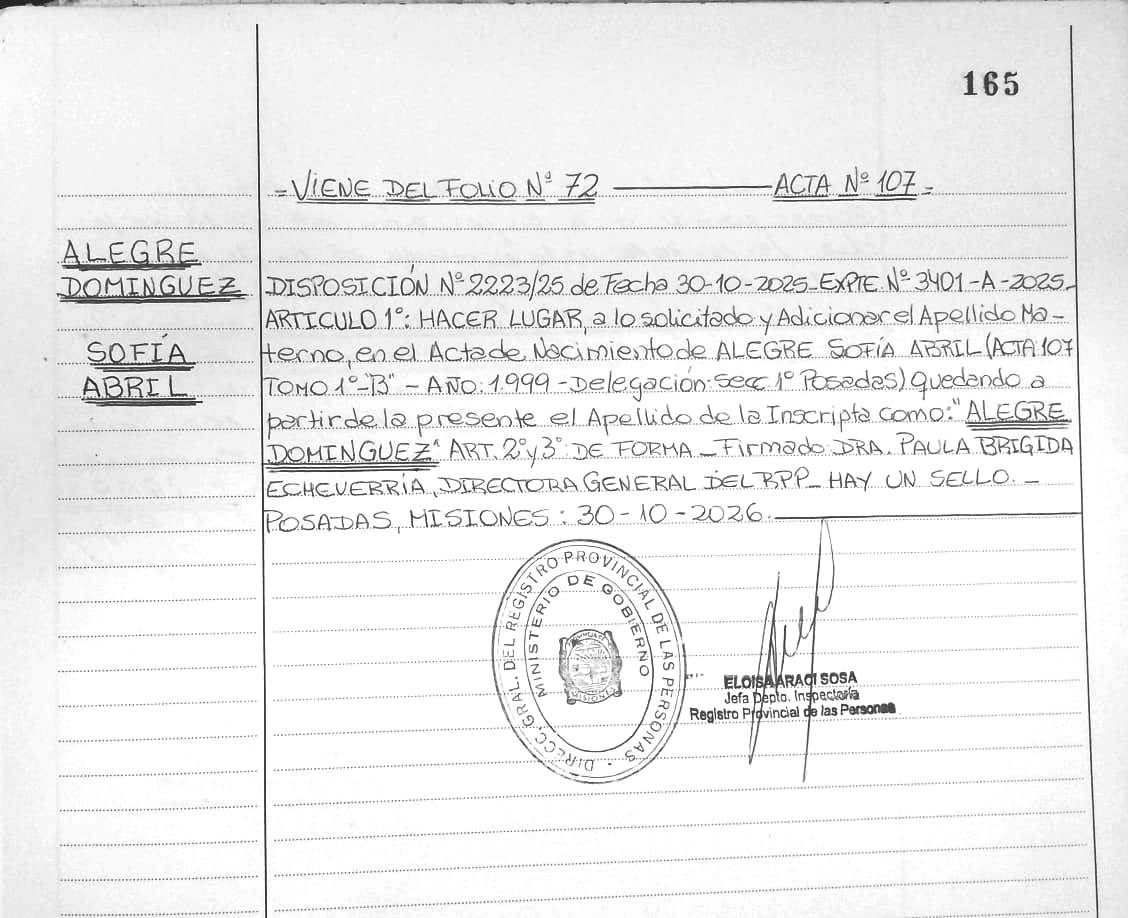 165
= VIENE DEL FOLIO Nº 72 ———— ACTA Nº 107 =
ALEGRE
DOMINGUEZ
SOFÍA
ABRIL
DISPOSICIÓN Nº 2223/25 de Fecha 30-10-2025_ EXPTE Nº 3401-A-2025_
ARTICULO 1º: HACER LUGAR, a lo solicitado y Adicionar el Apellido Ma-
terno, en el Acta de Nacimiento de ALEGRE SOFÍA ABRIL (ACTA 107
TOMO 1º-"B" - AÑO: 1.999 - Delegación: Secc 1º Posadas) Quedando a
partir de la presente el Apellido de la Inscripta como: "ALEGRE
DOMINGUEZ" ART. 2º y 3º: DE FORMA _ Firmado DRA. PAULA BRIGIDA
ECHEVERRÍA, DIRECTORA GENERAL DEL RPP_ HAY UN SELLO. _
POSADAS, MISIONES: 30-10-2026.
DIRECC. GRAL. DEL REGISTRO PROVINCIAL DE LAS PERSONAS
MINISTERIO DE GOBIERNO
MISIONES
ELOISA ARACI SOSA
Jefa Depto. Inspectoría
Registro Provincial de las Personas